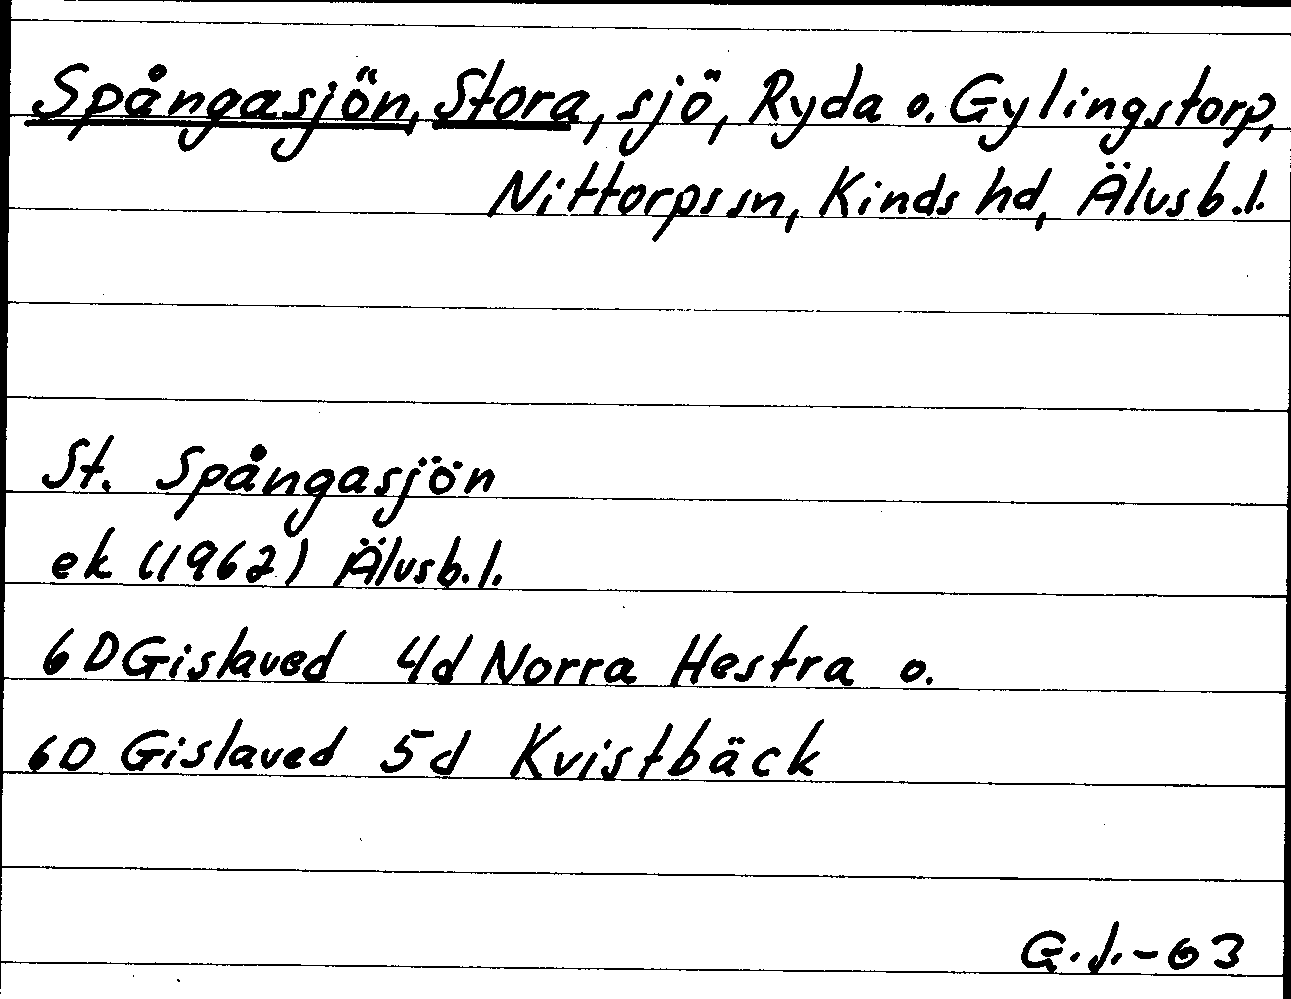 Spångasjön, Stora, sjö, Ryda o. Gylingstorp,
Nittorps sn, Kinds hd, Älvsb.l.
St. Spångasjön
ek (1962) Älvsb.l.
6D Gislaved 4d Norra Hestra o.
6D Gislaved 5d Kvistbäck
G.J.-63